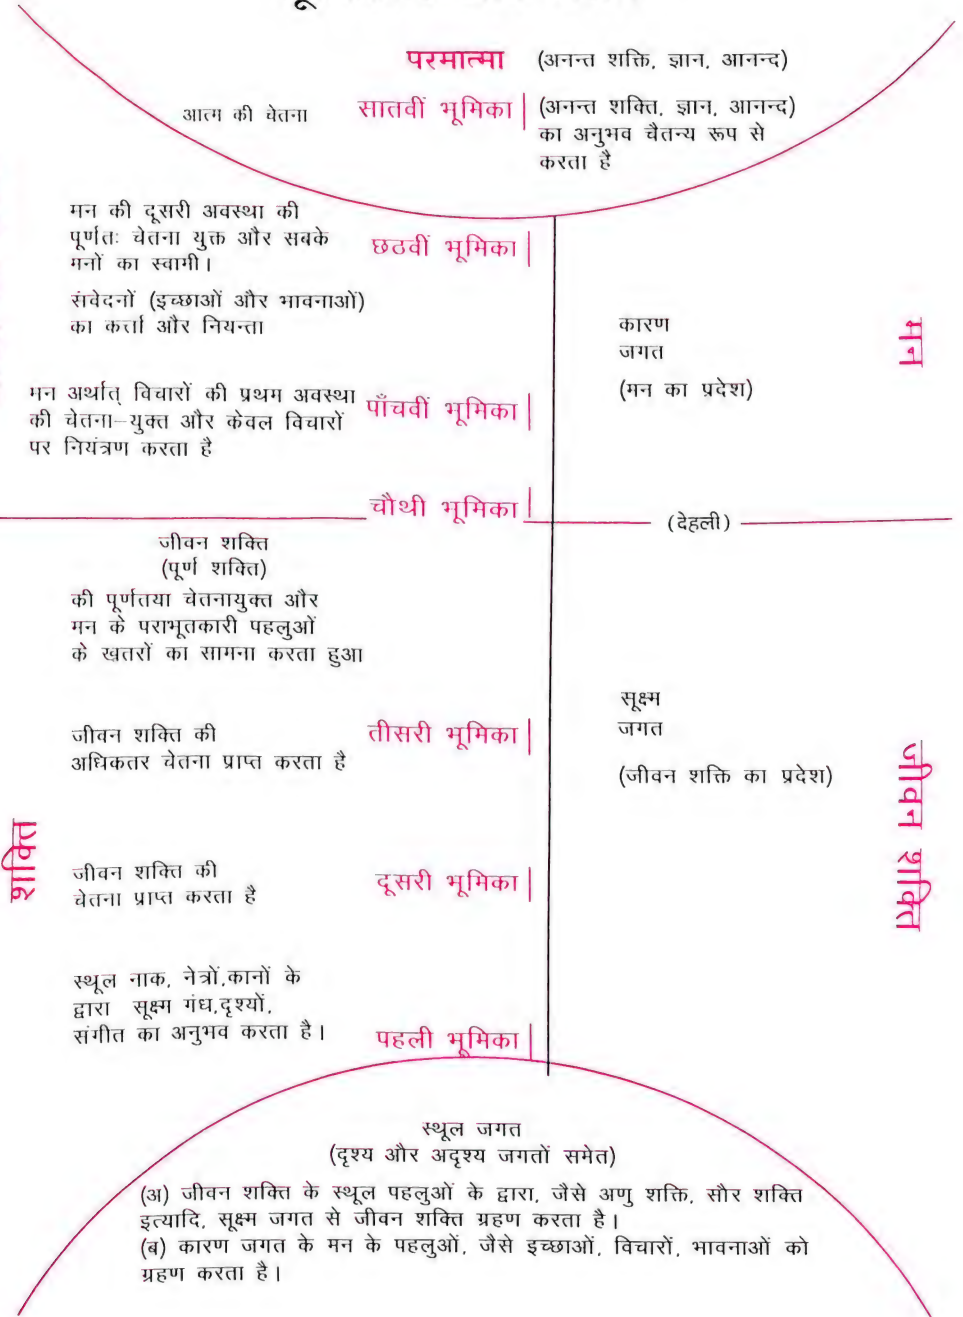 परमात्मा (अनन्त शक्ति, ज्ञान, आनन्द)
आत्म की चेतना सातवीं भूमिका (अनन्त शक्ति, ज्ञान, आनन्द)
का अनुभव चैतन्य रूप से
करता है
मन की दूसरी अवस्था की
पूर्णतः चेतना युक्त और सबके
मनों का स्वामी।
छठवीं भूमिका
संवेदनों (इच्छाओं और भावनाओं)
का कर्त्ता और नियन्ता
कारण
जगत
(मन का प्रदेश)
मन
मन अर्थात् विचारों की प्रथम अवस्था
की चेतना–युक्त और केवल विचारों
पर नियंत्रण करता है
पाँचवीं भूमिका
चौथी भूमिका
(देहली)
जीवन शक्ति
(पूर्ण शक्ति)
की पूर्णतया चेतनायुक्त और
मन के पराभूतकारी पहलुओं
के खतरों का सामना करता हुआ
सूक्ष्म
जगत
(जीवन शक्ति का प्रदेश)
जीवन शक्ति
जीवन शक्ति की
अधिकतर चेतना प्राप्त करता है
तीसरी भूमिका
शक्ति
जीवन शक्ति की
चेतना प्राप्त करता है
दूसरी भूमिका
स्थूल नाक, नेत्रों,कानों के
द्वारा सूक्ष्म गंध,दृश्यों,
संगीत का अनुभव करता है।
पहली भूमिका
स्थूल जगत
(दृश्य और अदृश्य जगतों समेत)
(अ) जीवन शक्ति के स्थूल पहलुओं के द्वारा, जैसे अणु शक्ति, सौर शक्ति
इत्यादि, सूक्ष्म जगत से जीवन शक्ति ग्रहण करता है।
(ब) कारण जगत के मन के पहलुओं, जैसे इच्छाओं, विचारों, भावनाओं को
ग्रहण करता है।